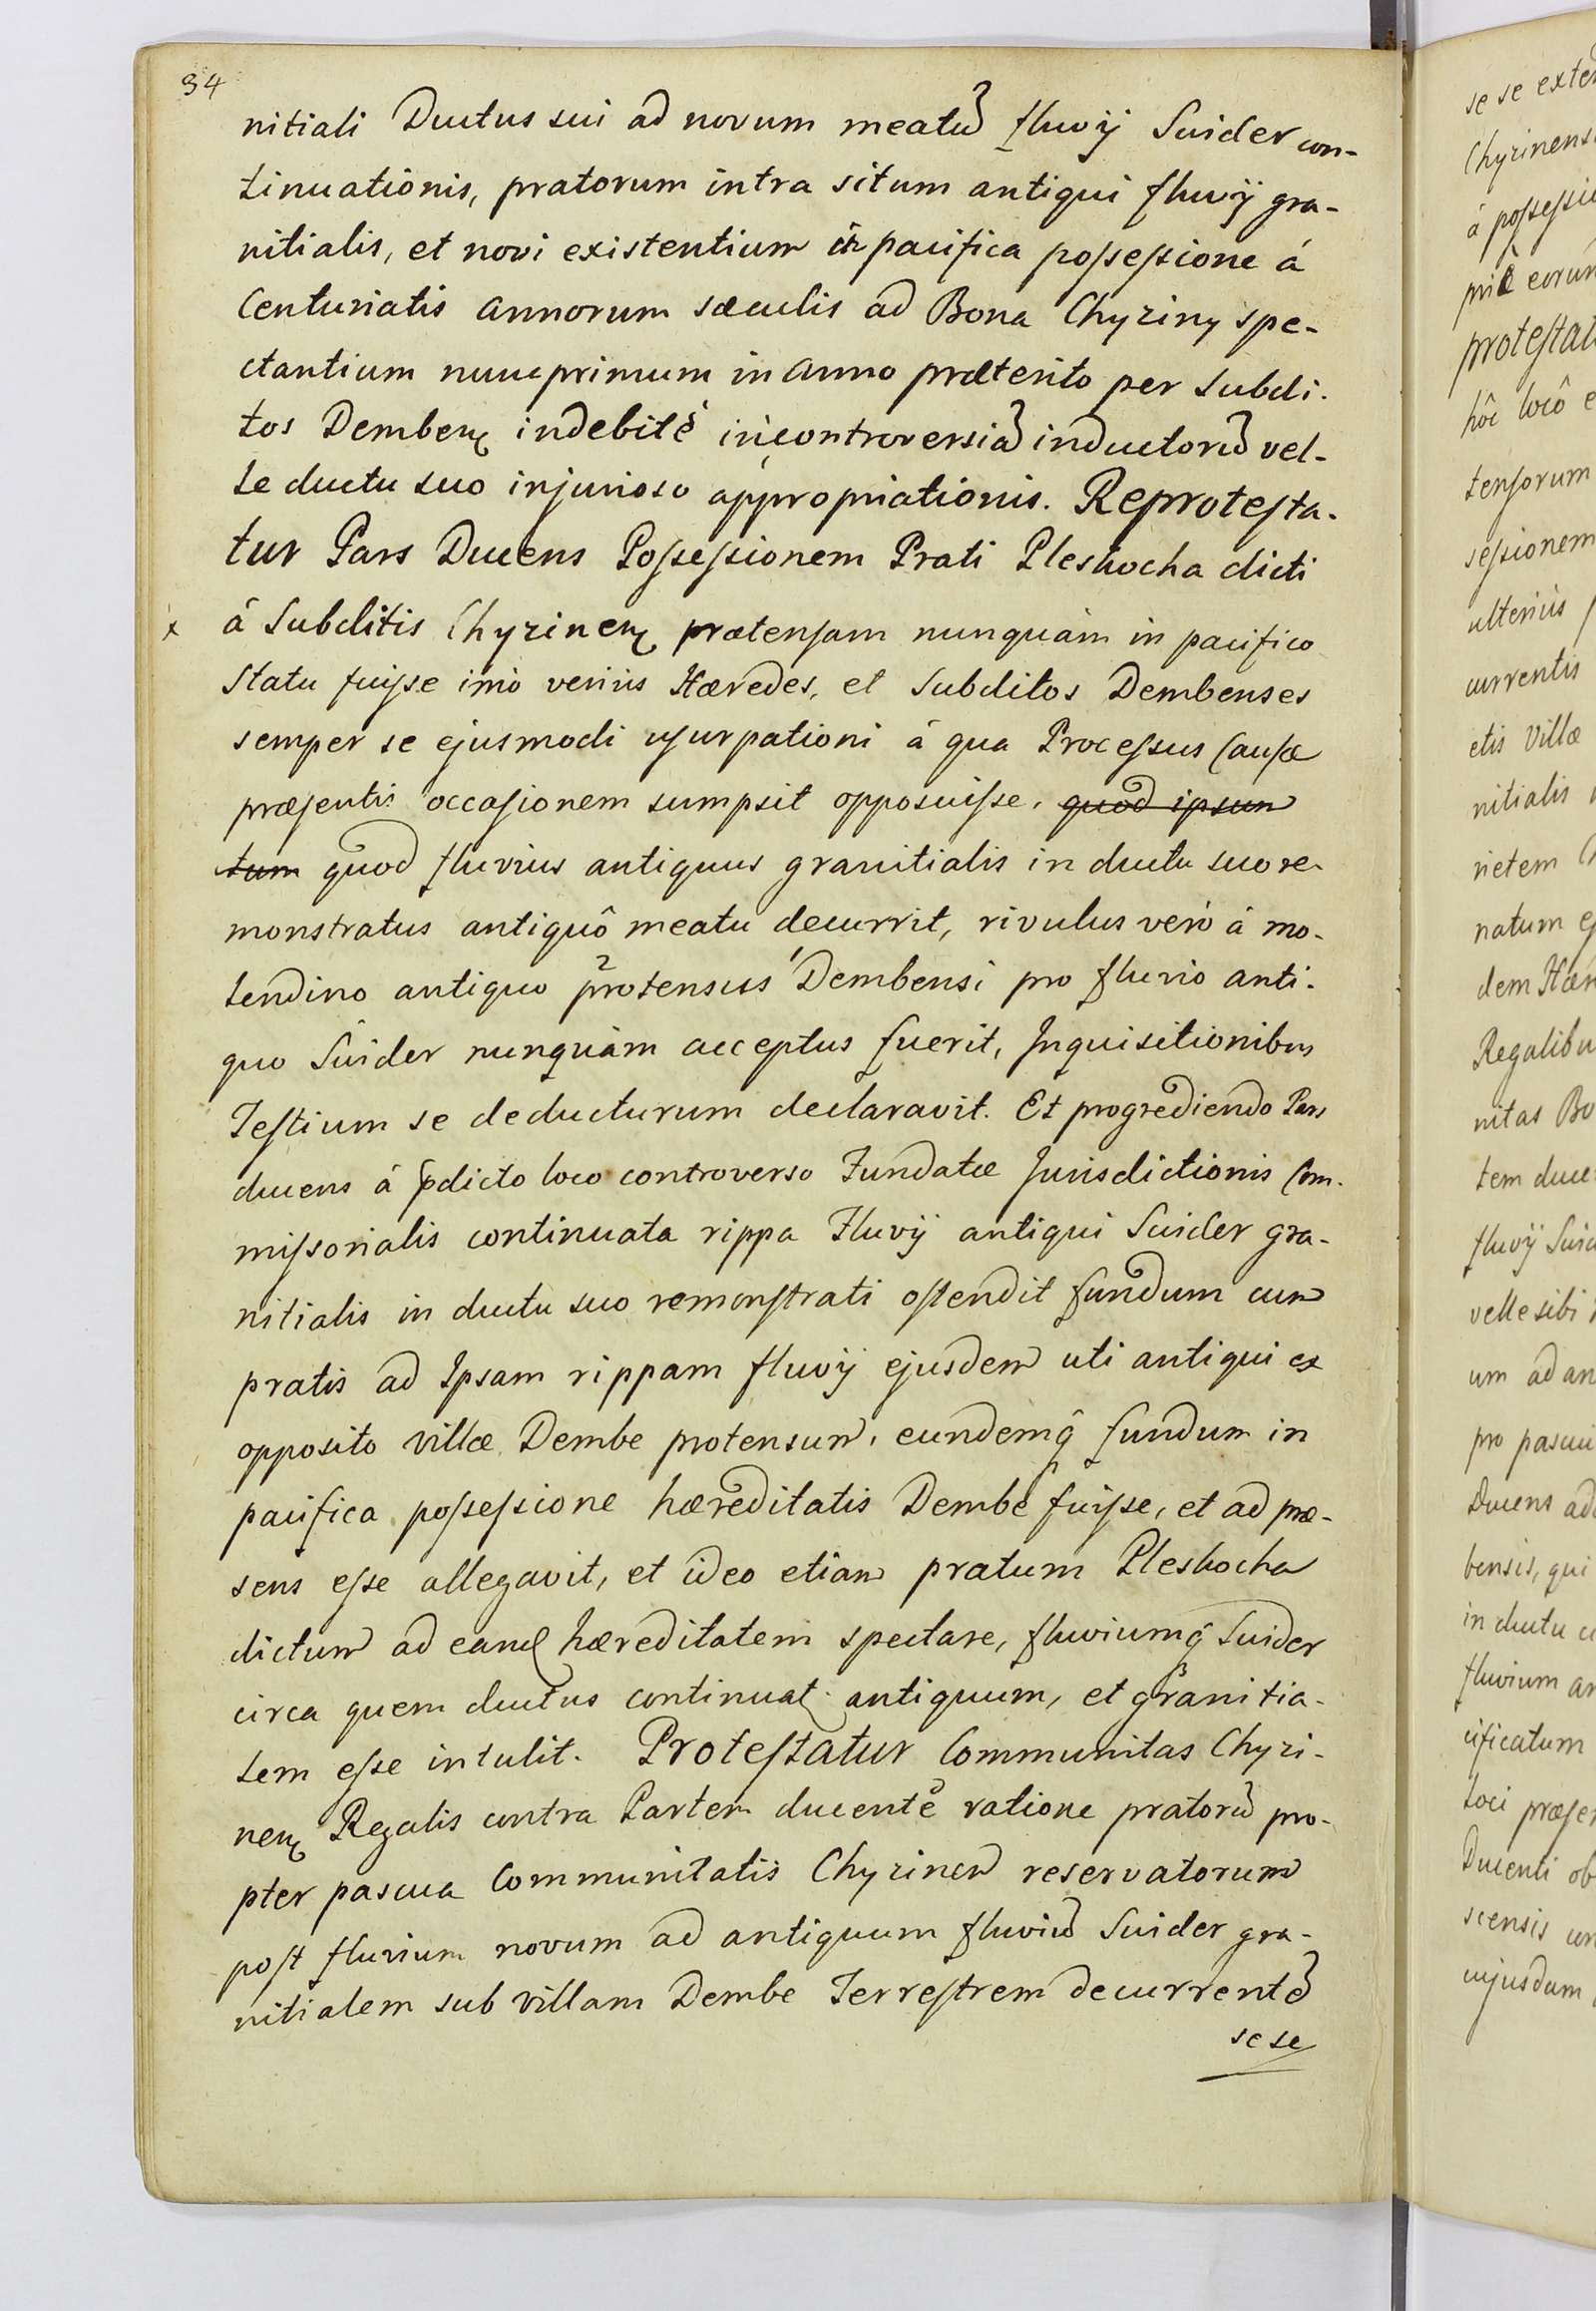 34
nitiali Ductus sui ad novum meatū fluvij Suider con-
tinuationis, pratorum intra situm antiqui fluvij gra-
nitialis, et novi existentium in pacifica poſseſsione á
Centuriatis Annorum sæculis ad Bona Chyziny spe-
ctantium nunc primum in Anno præterito per Subdi-
tos Demben indebité in controversiā inductorū vel-
le ductu suo injurioso appropriationis. Reproteſta-
tur Pars Ducens Poſseſsionem Prati Pleskocha dicti
x á Subditis Chyzinen prætenſam nunquàm in pacifico
Statu fuiſse imò verius Hæredes, et Subditos Dembenses
semper se ejusmodi uſurpationi á qua Proceſsus Cauſæ
præſentis occaſionem sumpsit opposuiſse, quod ipsum
tum quod fluvius antiquus granitialis in ductu suo re-
monstratus antiquô meatu decurrit, rivulus verò á mo-
lendino antiquo protensus Dembensi pro fluvio anti-
quo Suider nunquàm acceptus fuerit, Inquisitionibus
Teſtium se deducturum declaravit. Et progrediendo Pars
ducens á pdicto loco controverso Fundatæ Jurisdictionis Com-
miſsorialis continuata rippa Fluvij antiqui Suider gra-
nitialis in ductu suo remonſtrati oſtendit fundum cum
pratis ad Ipsam rippam fluvij ejusdem uti antiqui ex
opposito villæ Dembe protensum, eundemq̂ fundum in
pacifica poſseſsione hæreditatis Dembe fuiſse, et ad præ-
sens eſse allegavit, et ideo etiam pratum Pleskocha
dictum ad eand hæreditatem spectare, fluviumq̂ Suider
circa quem ductus continuat antiquum, et granitia-
lem eſse intulit. Proteſtatur Communitas Chyzi-
nen Regalis contra Partem ducentē ratione pratorū pro-
pter pascua Communitatis Chyzinen reservatorum
poſt fluvium novum ad antiquum fluviū Suider gra-
nitialem sub villam Dembe Terreſtrem decurrentē
se se
se se exten
Chyzinens
á poſseſsio
eorum
proteſtat
hôc locô e
tenſorum
seſsionem
ulterius
currentis
etis Villæ
nitialis
rietem
natum ej
dem Hær
Regalibu
nitas Bo
tem duce
fluvij Suid
velle sibi
um ad an
pro pascui
Ducens ad
bensis, qui
in ductu
fluvium an
cificatum
loci præſen
Ducenti ob
scensis con
cujusdam